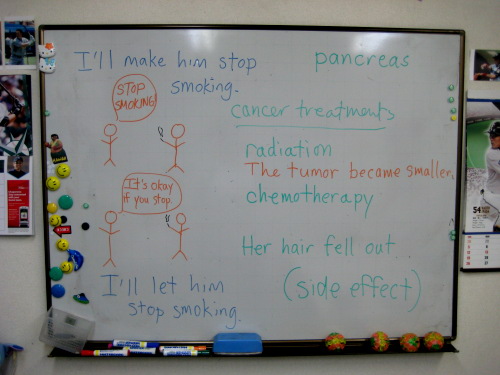 I'll make him stop
smoking.
STOP
SMOKING!
It's okay
if you stop.
I'll let him
stop smoking.
pancreas
cancer treatments
radiation
The tumor became smaller.
chemotherapy
Her hair fell out...
(side effect)
54